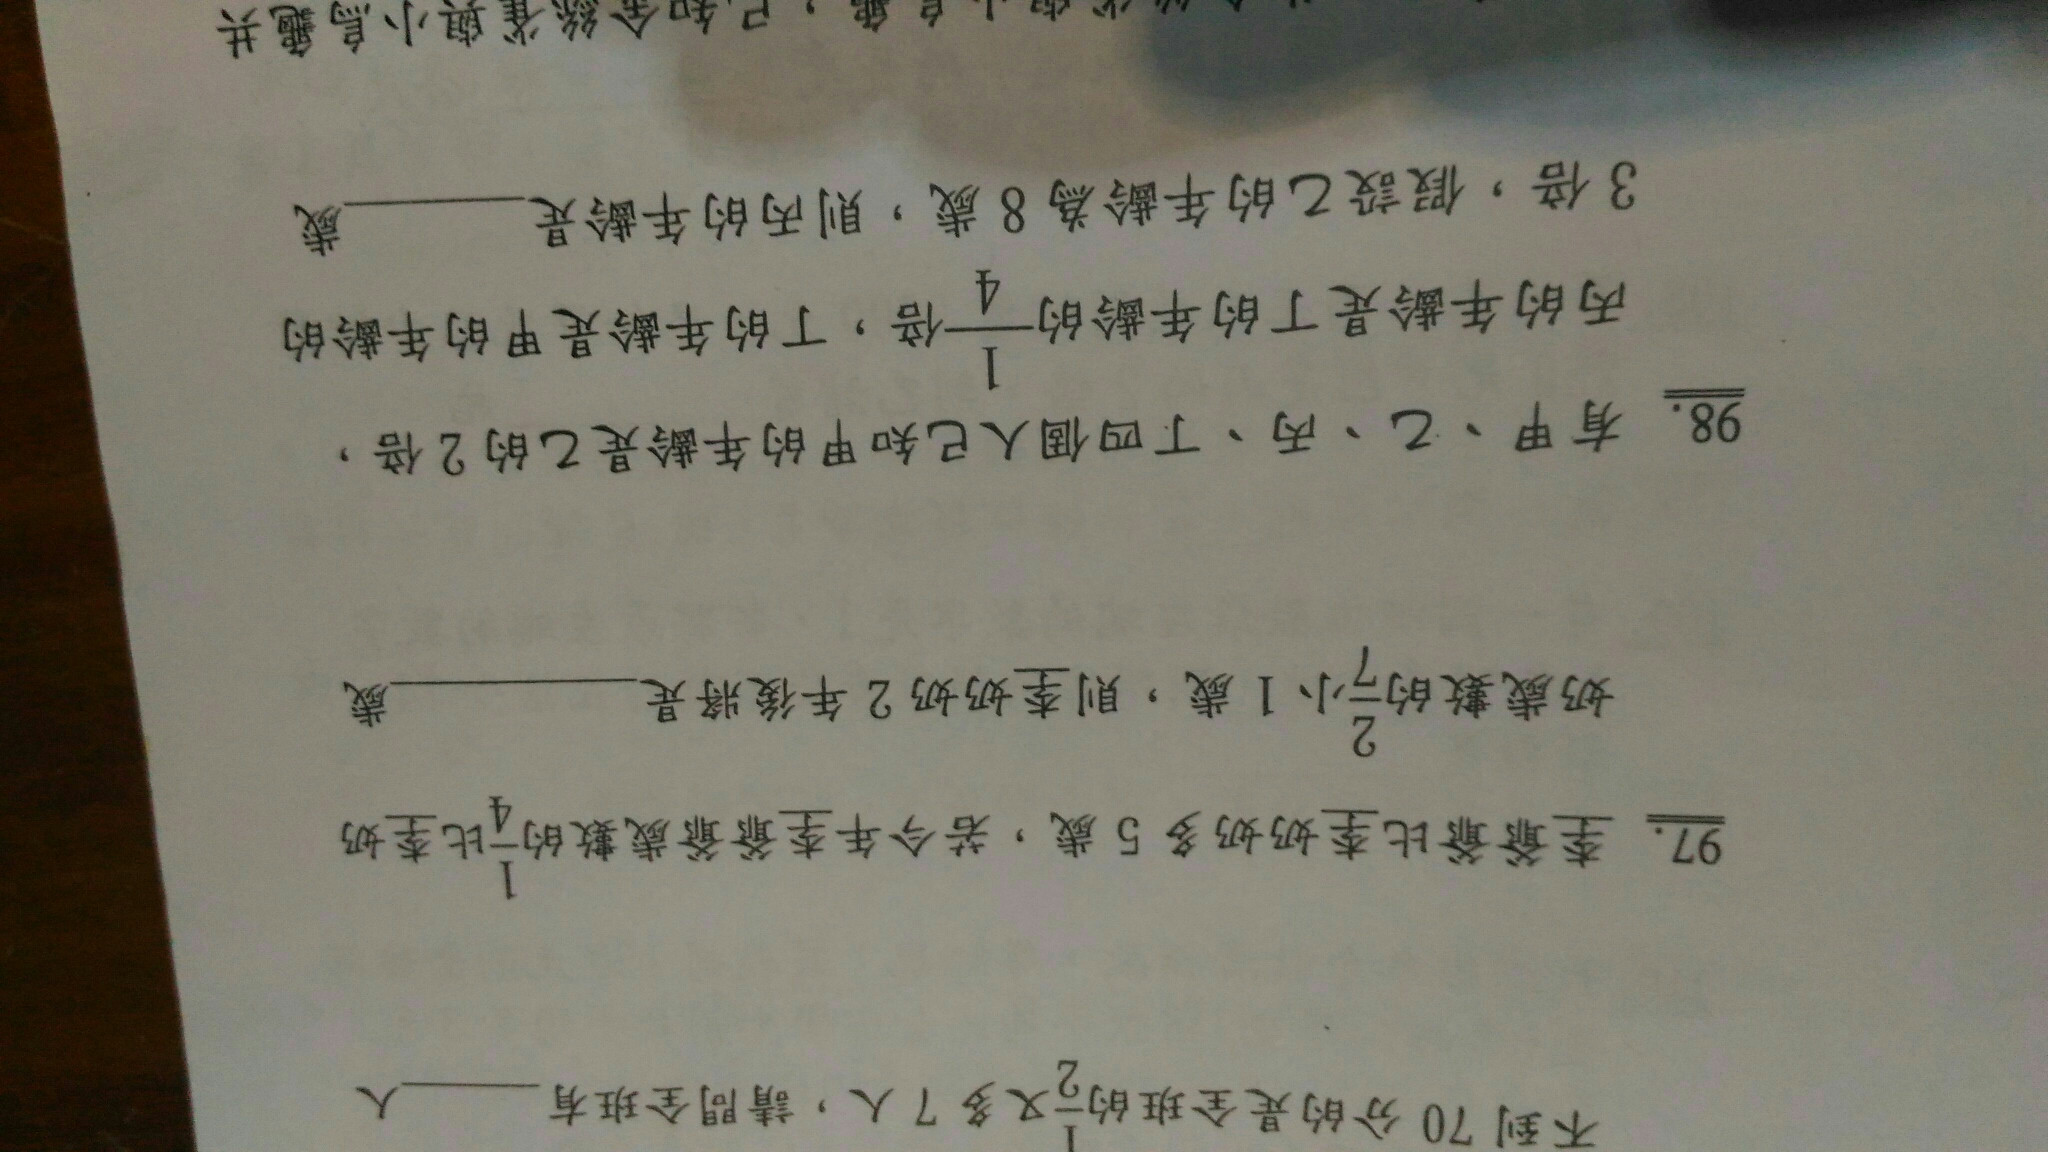 不到 70 分的是全班的1/2又多 7 人，請問全班有______人
97. 李爺爺比李奶奶多 5 歲，若今年李爺爺歲數的1/4比李奶
奶歲數的2/7小 1 歲，則李奶奶 2 年後將是______歲
98. 有甲、乙、丙、丁四個人已知甲的年齡是乙的 2 倍，
丙的年齡是丁的年齡的1/4倍，丁的年齡是甲的年齡的
3 倍，假設乙的年齡為 8 歲，則丙的年齡是______歲
小烏龜，已知金絲雀與小烏龜共